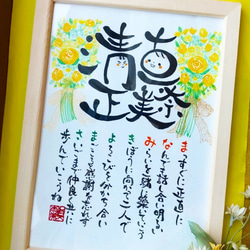 真奈美
清正
まっすぐに正直に
なんでも話し合い明るい
みらいを築いていこう
きぼうに向かって二人で
よろこびを分かち合い
まごころと感謝を忘れず
さいごまで仲良く共に
歩んでいこうね